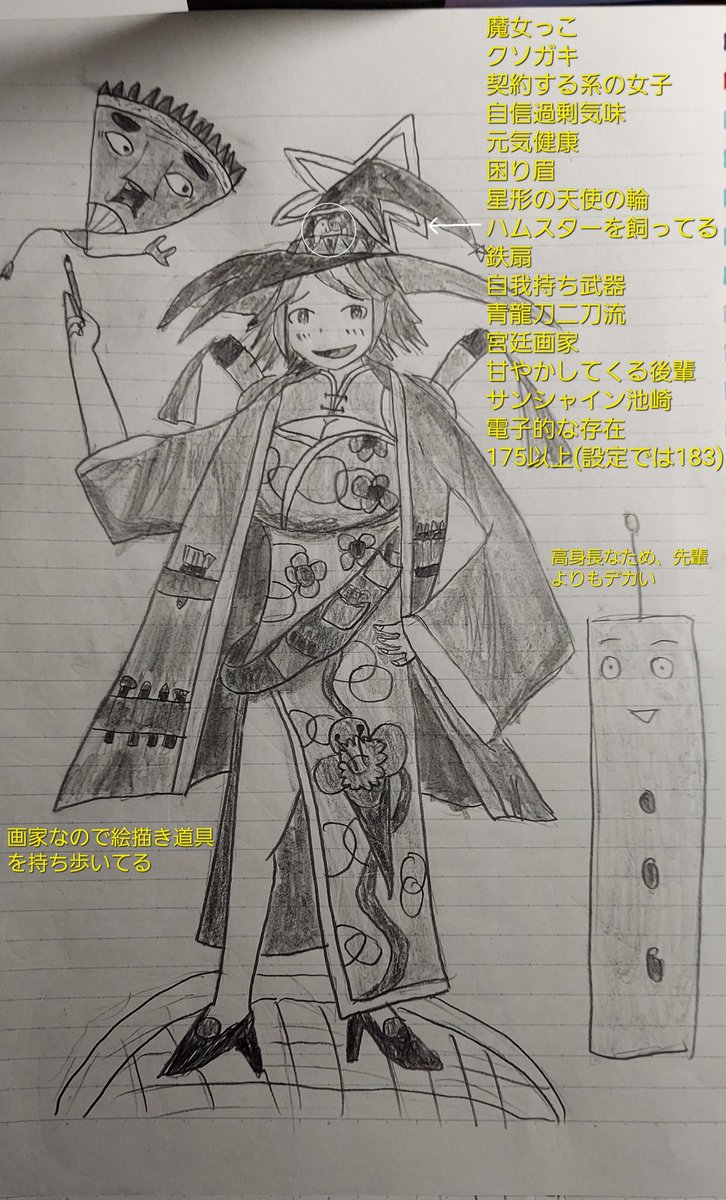 魔女っこ
クソガキ
契約する系の女子
自信過剰気味
元気健康
困り眉
星形の天使の輪
ハムスターを飼ってる
鉄扇
自我持ち武器
青龍刀二刀流
宮廷画家
甘やかしてくる後輩
サンシャイン池崎
電子的な存在
175以上(設定では183)
高身長なため、先輩
よりもデカい
画家なので絵描き道具
を持ち歩いてる